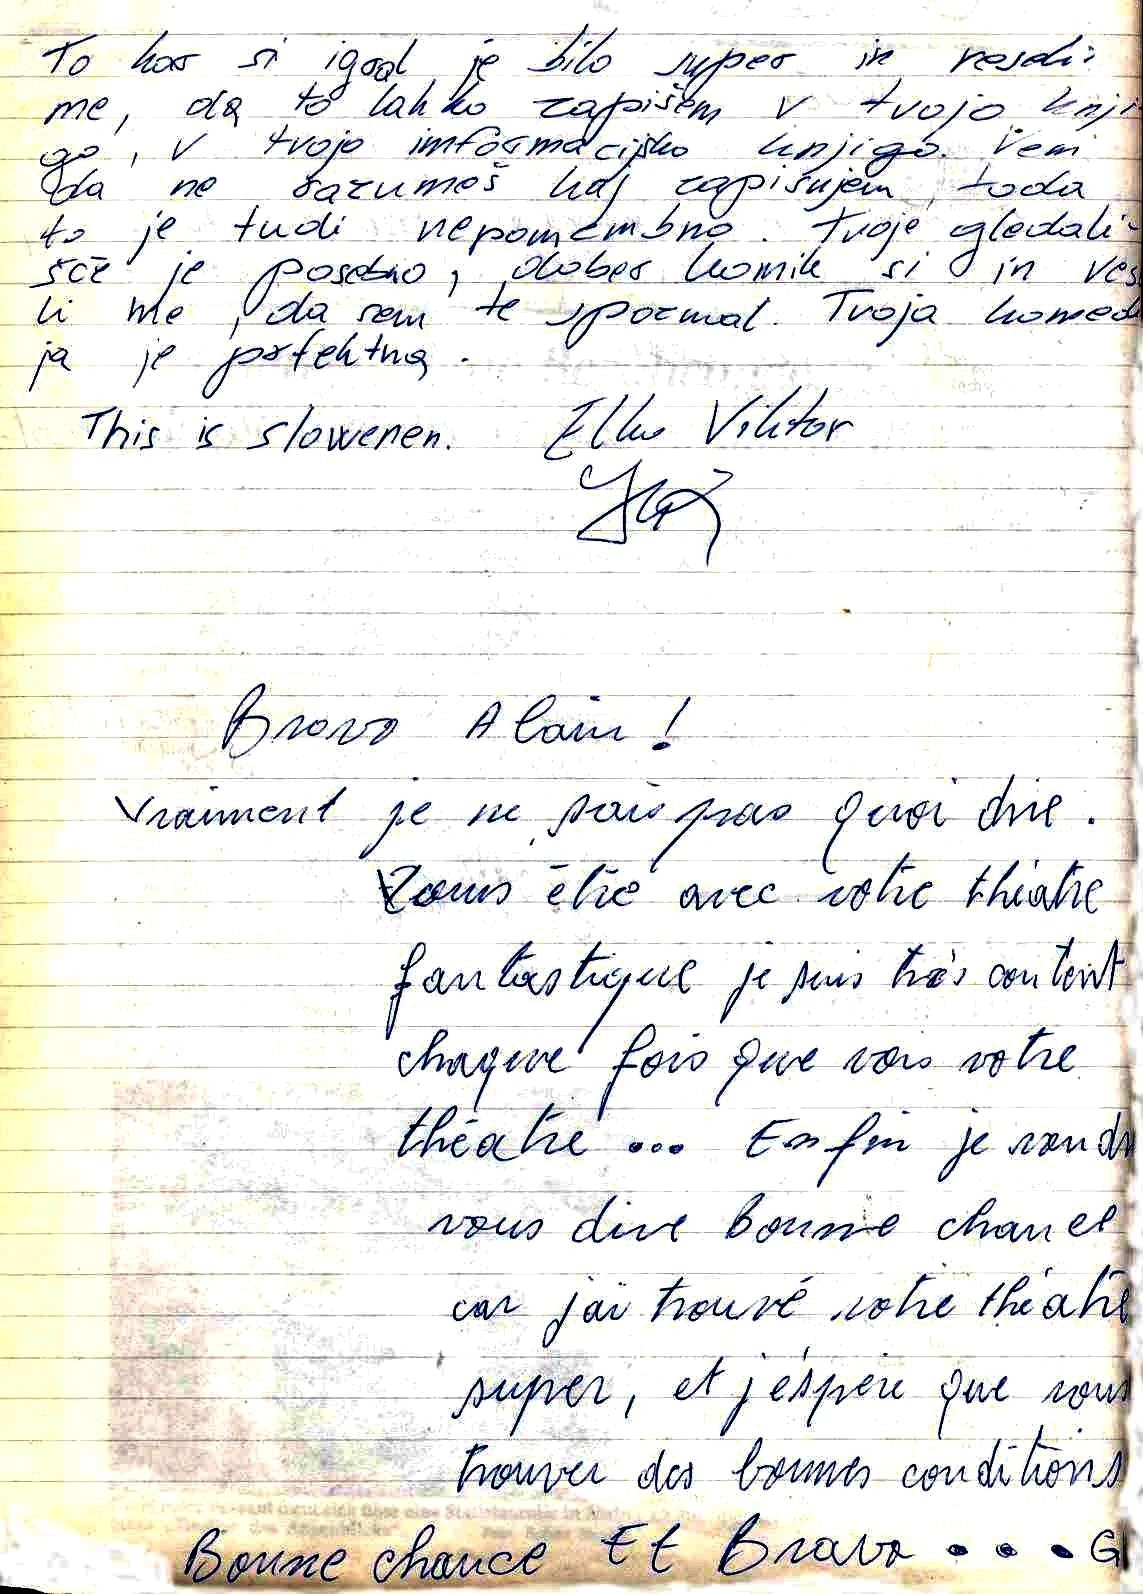 To kar si igral, je bilo super in veseli
me, da to lahko zapišem v tvojo knji
go, v tvojo imformacijsko knjigo. Vem
da ne razumeš kaj zapisujem, toda
to je tudi nepomembno. Tvoje gledali-
šče je posebno, dober komik si in vese
li me, da sem te spoznal. Tvoja komedi
ja je prfektna.
This is slowenen. Elko Viktor
Bravo Alain!
Vraiment je ne sais pas quoi dire.
Vous être avec votre théatre
fantastique je suis très content
chaque fois que vois votre
théatre ... Enfin je voudr
vous dire bonne chance
car j'ai trouvé votre théatre
super, et j'éspère que vous
trouver des bonnes conditions
Bonne chance Et Bravo ...